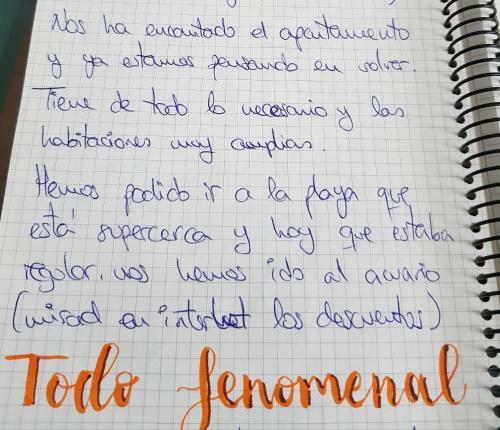 Nos ha encantado el apartamento
y ya estamos pensando en volver.
Tiene de todo lo necesario y las
habitaciones muy amplias.
Hemos podido ir a la playa que
está supercerca y hoy que estaba
regular, nos hemos ido al acuario
(mirad en internet los descuentos)
Todo fenomenal